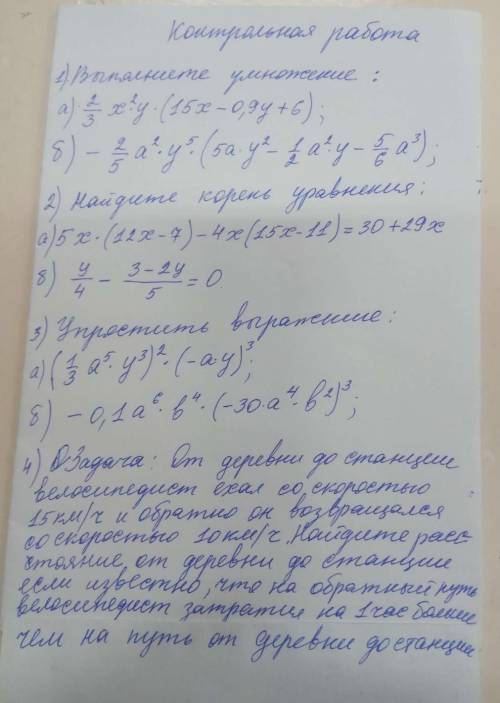 Контрольная работа
1) Выполните умножение:
а) 2/3 x²y · (15x − 0,9y + 6);
б) − 2/5 a² · y⁵ · (5a · y² − 1/2 a² · y − 5/6 a³);
2) Найдите корень уравнения:
а) 5x · (12x − 7) − 4x (15x − 11) = 30 + 29x
в) y/4 − (3 − 2y)/5 = 0
3) Упростить выражение:
а) (1/3 a⁵ · y³)² · (−a · y)³;
б) − 0,1a⁶ · b⁴ · (−30 · a⁴ · b²)³;
4) Задача: От деревни до станции
велосипедист ехал со скоростью
15 км/ч и обратно он возвращался
со скоростью 10 км/ч. Найдите расс-
тояние от деревни до станции
если известно, что на обратный путь
велосипедист затратил на 1 час больше
чем на путь от деревни до станции